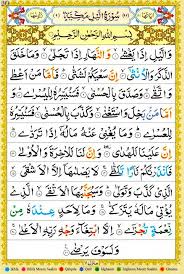 سُوْرَةُ الَّيْلِ مَكِّيَّةٌ
بِسْمِ اللّٰهِ الرَّحْمٰنِ الرَّحِيْمِ
وَالَّيْلِ اِذَا يَغْشٰى وَالنَّهَارِ اِذَا تَجَلّٰى وَمَا خَلَقَ
الذَّكَرَ وَالْاُنْثٰٓى اِنَّ سَعْيَكُمْ لَشَتّٰى فَاَمَّا مَنْ
اَعْطٰى وَاتَّقٰى وَصَدَّقَ بِالْحُسْنٰى فَسَنُيَسِّرُهٗ
لِلْيُسْرٰى وَاَمَّا مَنْۢ بَخِلَ وَاسْتَغْنٰى وَكَذَّبَ بِالْحُسْنٰى فَسَنُيَسِّرُهٗ
لِلْعُسْرٰى وَمَا يُغْنِيْ عَنْهُ مَالُهٗٓ اِذَا تَرَدّٰى
اِنَّ عَلَيْنَا لَلْهُدٰى وَاِنَّ لَنَا لَلْاٰخِرَةَ وَالْاُوْلٰى
فَاَنْذَرْتُكُمْ نَارًا تَلَظّٰى لَا يَصْلٰىهَآ اِلَّا الْاَشْقَى
الَّذِيْ كَذَّبَ وَتَوَلّٰى وَسَيُجَنَّبُهَا الْاَتْقَى الَّذِيْ
يُؤْتِيْ مَالَهٗ يَتَزَكّٰى وَمَا لِاَحَدٍ عِنْدَهٗ مِنْ
نِّعْمَةٍ تُجْزٰٓى اِلَّا ابْتِغَآءَ وَجْهِ رَبِّهِ الْاَعْلٰى
وَلَسَوْفَ يَرْضٰى